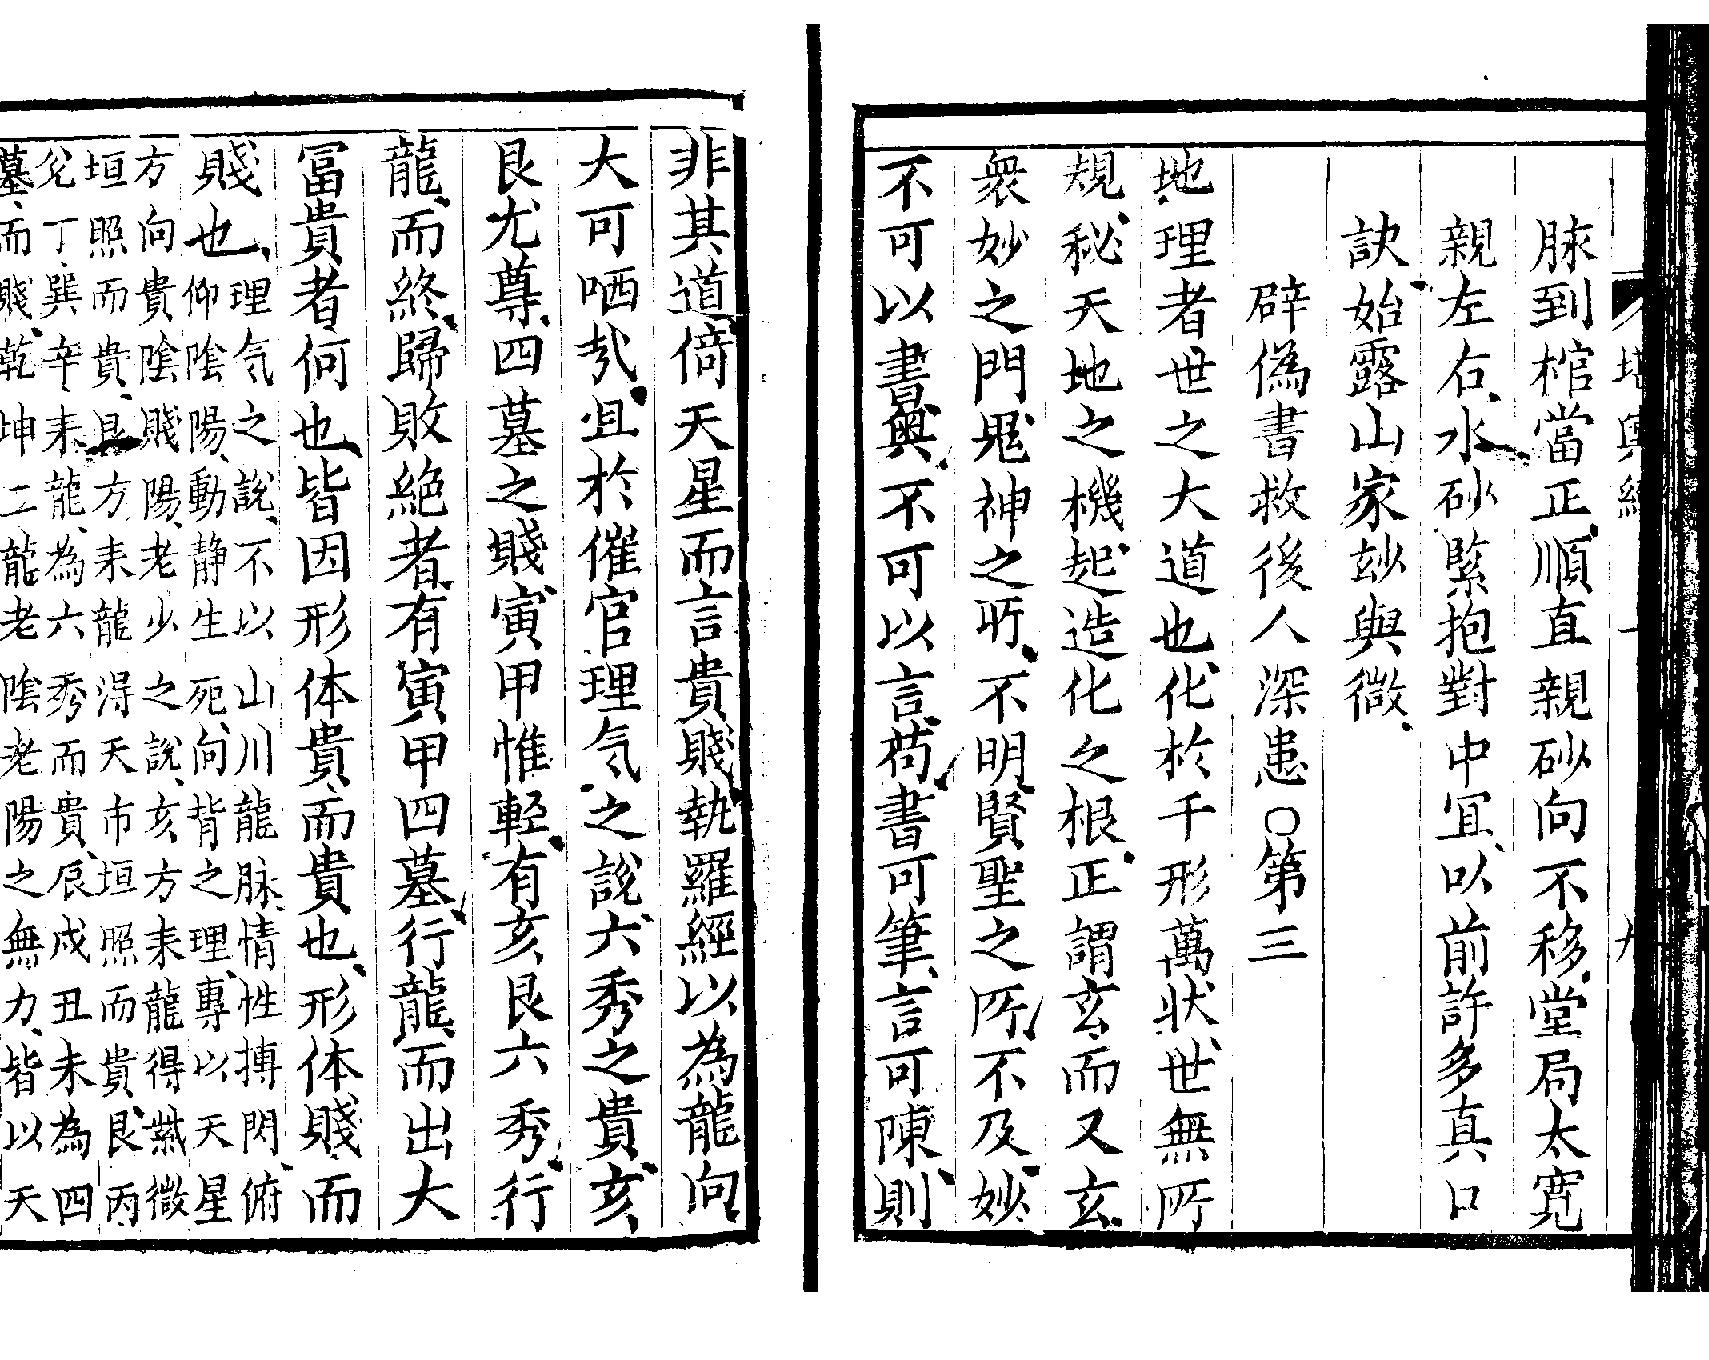 脉到棺當正順直親砂向不移堂局太寬
親左右水砂緊抱對中宜以前許多真口
訣始露山家玅與微
辟偽書救後人深患○第三
地理者世之大道也化於千形萬狀世無所
規秘天地之機起造化之根正謂玄而又玄
衆妙之門鬼神之所不明賢聖之所不及妙
不可以書與不可以言苟書可筆言可陳則
非其道倚天星而言貴賤執羅經以為龍向
大可哂㢤且於催官理气之說六秀之貴亥
艮尤尊四墓之賤寅甲惟輕有亥艮六秀行
龍而終歸敗絕者有寅甲四墓行龍而出大
冨貴者何也皆因形体貴而貴也形体賤而
賤也
理气之說不以山川龍脉情性摶閃俯
仰陰陽動静生死向背之理專以天星
方向貴陰賤陽老少之說亥方来龍得𤍠微
垣照而貴艮方来龍得天市垣照而貴艮丙
兊丁巽辛来龍為六秀而貴辰戍丑未為四
墓而賤乾坤二龍老陰老陽之無力皆以天